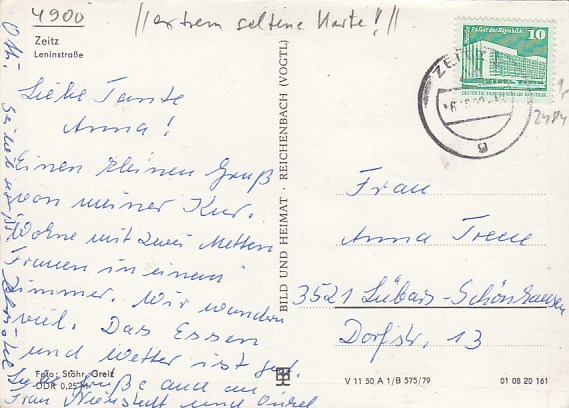 4900 //extrem seltene Karte!//
Zeitz
Leninstraße
Liebe Tante
Anna!
Einen kleinen Gruß
von meiner Kur.
Wohne mit zwei netten
Frauen in einem
Zimmer. Wir wandern
viel. Das Essen
und Wetter ist gut.
Foto: Stöhr, Greiz
DDR 0,25 M
Grüße auch an
Frau und Onkel
Otti.
BILD UND HEIMAT · REICHENBACH (VOGTL)
Palast der Republik
10
DEUTSCHE DEMOKRATISCHE REPUBLIK
ZEITZ
g
2484
Frau
Anna
3521 Lübars-Schönhausen
Dorfstr. 13
V 11 50 A 1/B 575/79
01 08 20 161